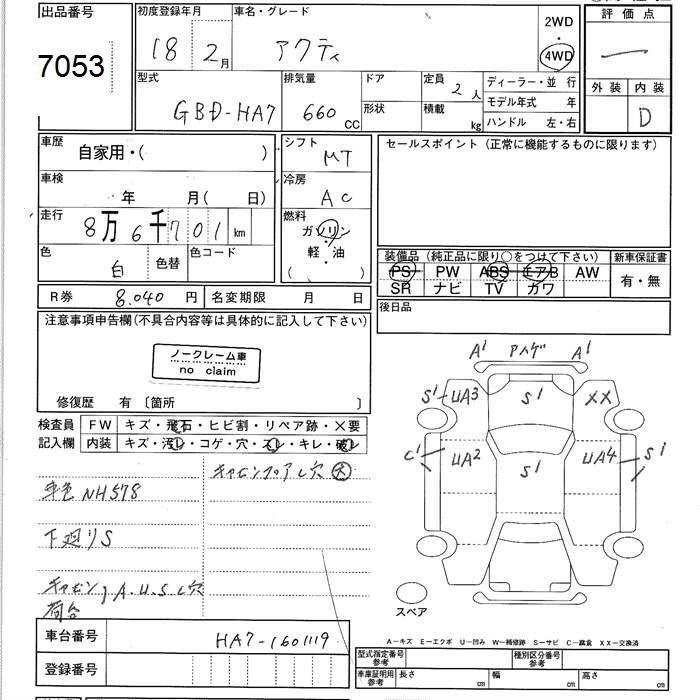 出品番号
7053
初度登録年月
18 2月
車名・グレード
アクティ
2WD
・
4WD
評 価 点
外 装 内 装
D
型式
GBD-HA7
排気量
660 cc
ドア
形状
定員
2人
積載
kg
ディーラー・並 行
モデル年式 年
ハンドル 左・右
車歴
自家用・( )
車検
年 月( 日)
走行
8万6千701km
色
白
色替
色コード
シフト
MT
冷房
AC
燃料
ガソリン
軽・油
( )
セールスポイント (正常に機能するものに限ります)
装備品 (純正品に限り○をつけて下さい)
PS PW ABS エアB AW
SR ナビ TV カワ
新車保証書
有・無
R券 8.040円
名変期限 月 日
後日品
注意事項申告欄(不具合内容等は具体的に記入して下さい)
ノークレーム車
no claim
修復歴 有 〔箇所 〕
検査員
記入欄
FW キズ・飛石・ヒビ割・リペア跡・×要
内装 キズ・汚レ・コゲ・穴・スレ・キレ・破レ
車色NH578
下廻りS
A1 A1
S1 UA3 S1 XX
C1 UA2 S1 UA4 S1
スペア
A-キズ E-エクボ U-凹み W-補修跡 S-サビ C-腐食 XX-交換済
車台番号
HA7-1601119
登録番号
型式指定番号
参考
種別区分番号
参考
車庫証明用
参考
長さ cm 幅 cm 高さ cm